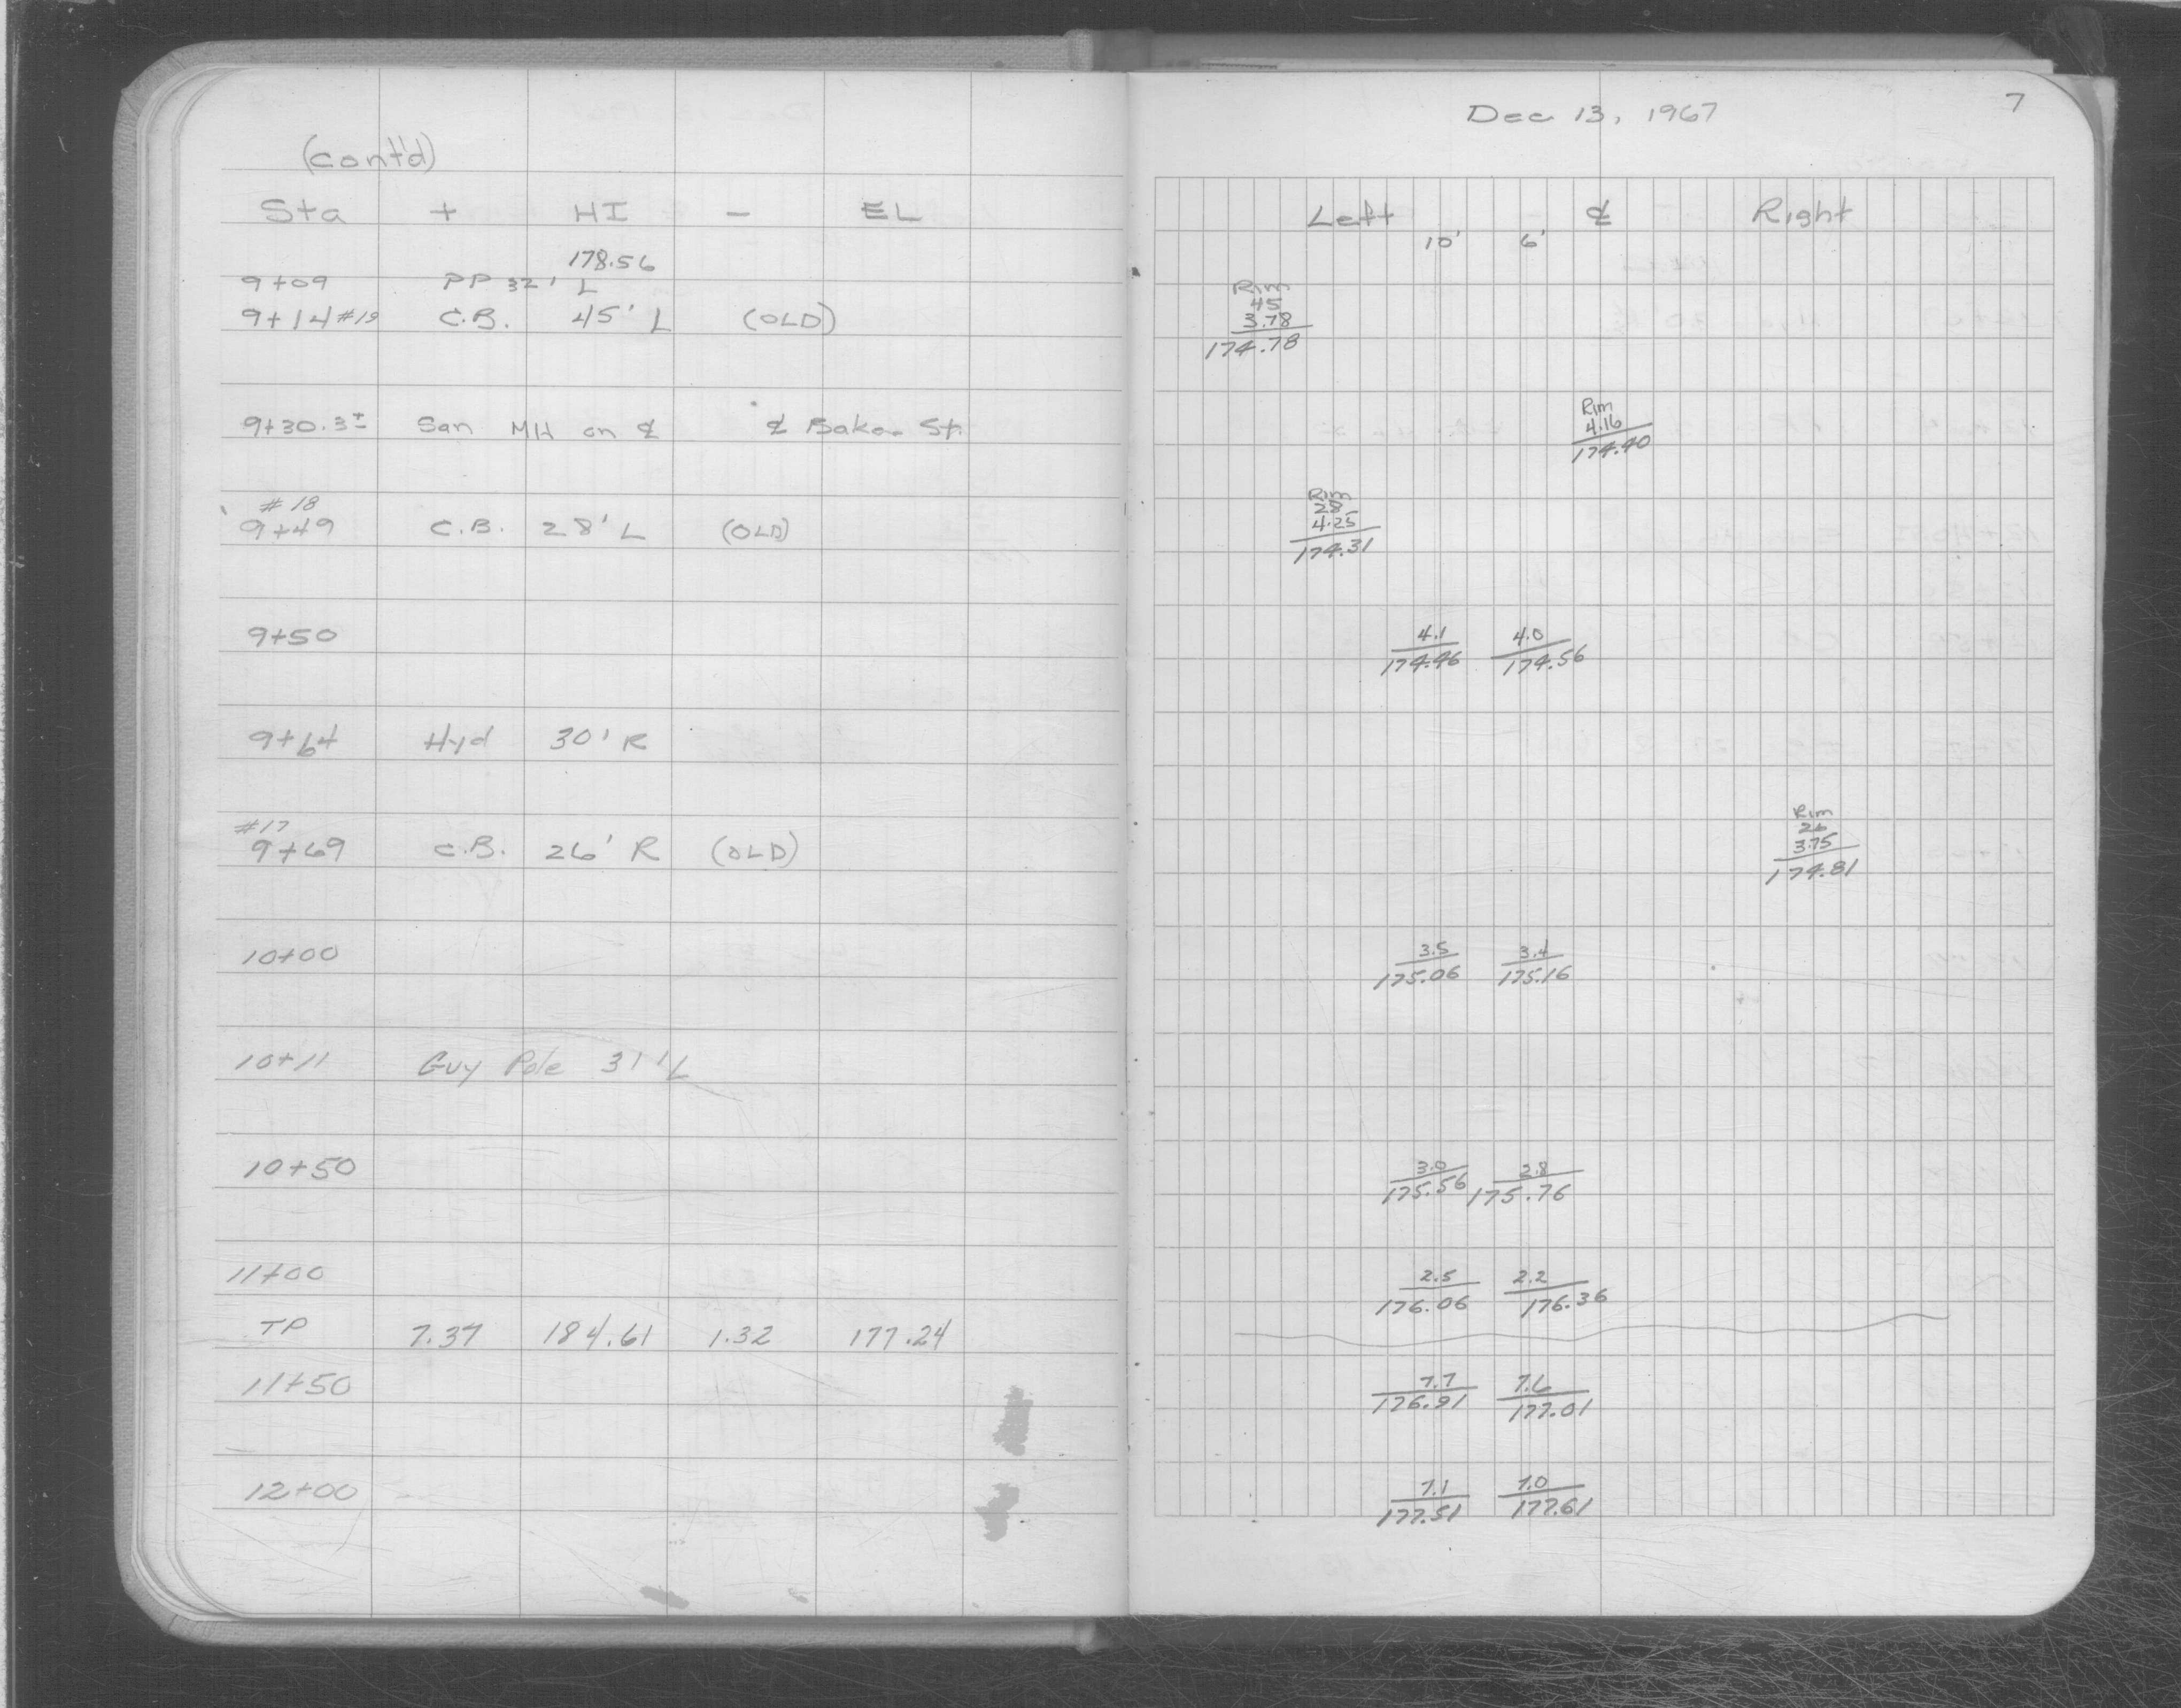 (cont'd)
Sta + HI - EL
178.56
9+09 PP 32' L
9+14 #19 C.B. 45' L (OLD)
9+30.3± San MH on ℄ ℄ Baker St.
#18
9+49 C.B. 28' L (OLD)
9+50
9+64 Hyd 30' R
#17
9+69 C.B. 26' R (OLD)
10+00
10+11 Guy Pole 31' L
10+50
11+00
TP 7.37 184.61 1.32 177.24
11+50
12+00
Dec 13, 1967 7
Left ℄ Right
10' 6'
Rim
45
3.78
174.78
Rim
4.16
174.40
Rim
28
4.25
174.31
4.1 4.0
174.46 174.56
Rim
26
3.75
174.81
3.5 3.4
175.06 175.16
3.0 2.8
175.56 175.76
2.5 2.2
176.06 176.36
7.7 7.6
176.91 177.01
7.1 7.0
177.51 177.61